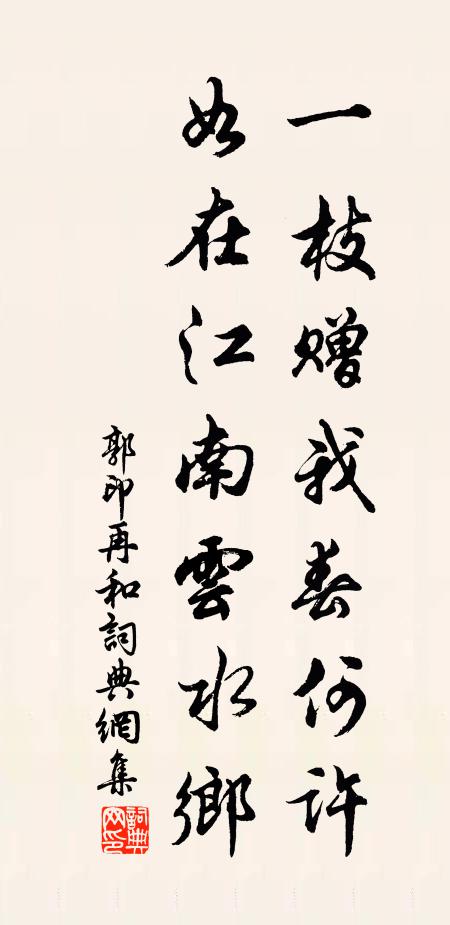 一枝贈我春何許
如在江南雲水鄉
郭印再和詞典網集
詞典网印